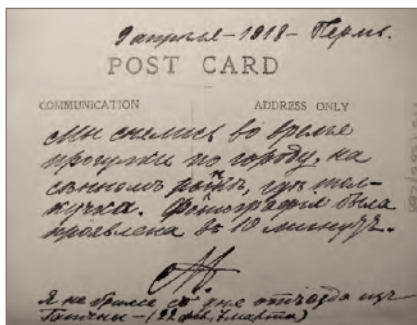 9 апреля - 1918 - Пермь.
POST CARD
COMMUNICATION
ADDRESS ONLY
Мы снялись во время
прогулки по городу, на
сѣнномъ рынкѣ, гдѣ тол-
кучка. Фотография была
проявлена въ 10 минутъ.
М
Я не брился со дня отъѣзда изъ
Гатчины - (22 фев. 7 марта)